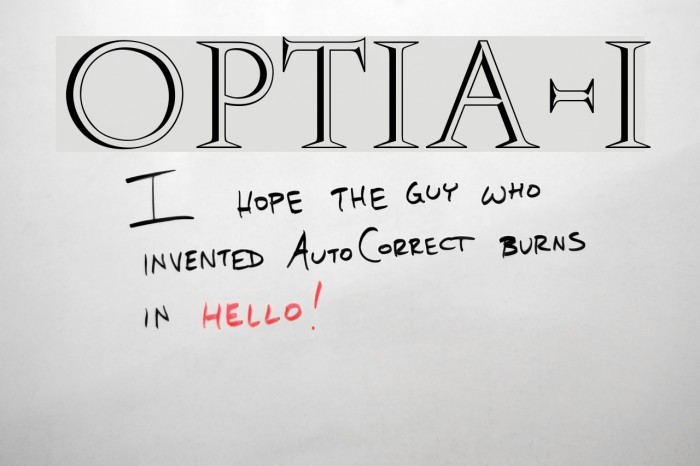 OPTIA-I
I HOPE THE GUY WHO
INVENTED AUTOCORRECT BURNS
IN HELLO!